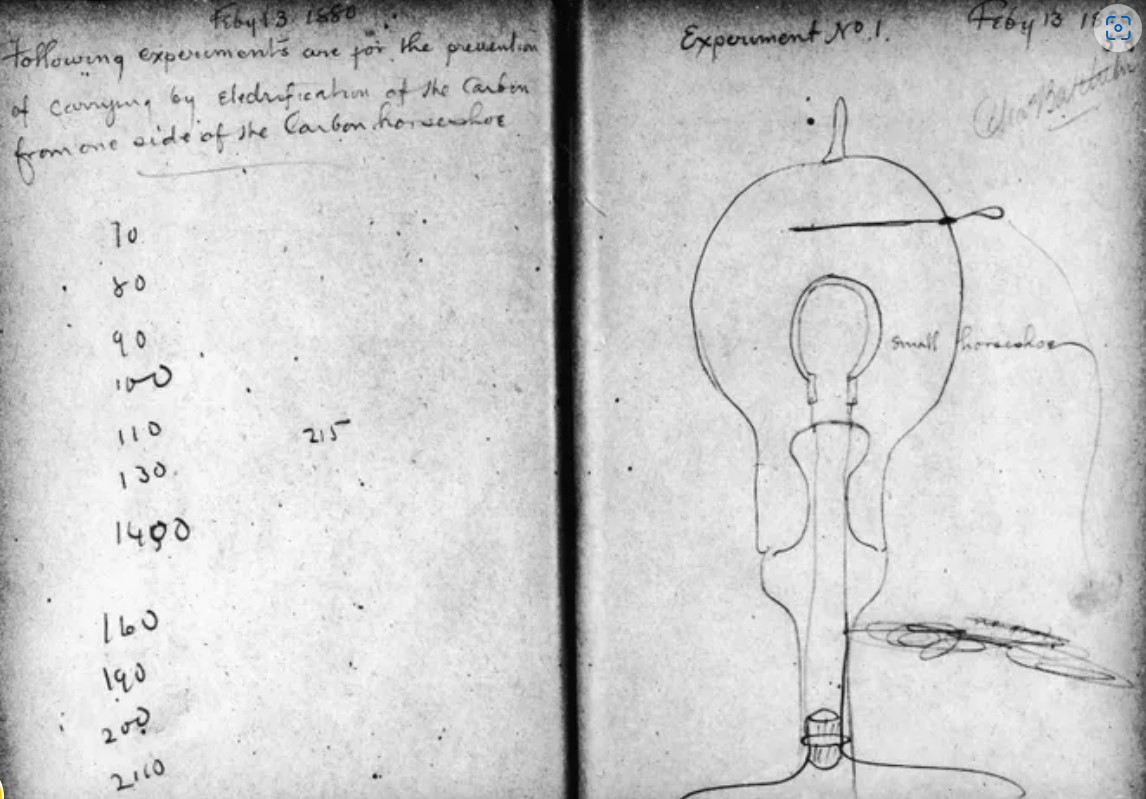 Feby 13 1880
Following experiments are for the prevention
of carrying by Electrification of the Carbon
from one side of the Carbon horseshoe
70
80
90
100
110 215
130
1400
160
190
200
2110
Experiment No. 1.
Feby 13
small horseshoe